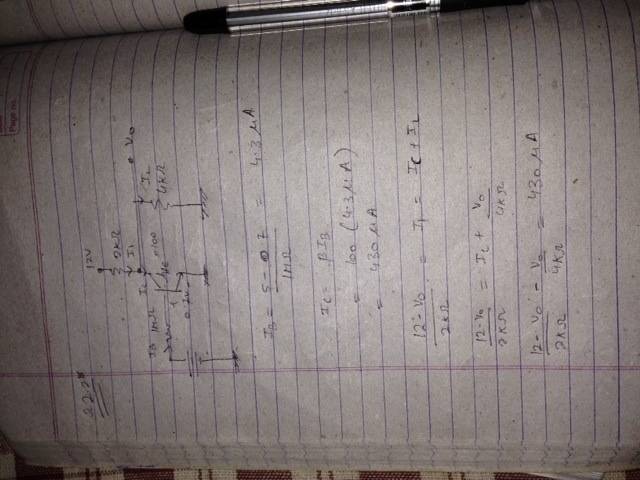 22.28
12V
2kΩ
I1
Vo
IC
IL
4kΩ
IB 1MΩ
β=100
0.7V
IB = 5 - 0.7 / 1MΩ = 4.3 μA
IC = βIB
= 100 (4.3 μA)
= 430 μA
12-Vo / 2kΩ = I1 = IC + IL
12-Vo / 2kΩ = IC + Vo / 4kΩ
12-Vo / 2kΩ - Vo / 4kΩ = 430 μA
Page no.